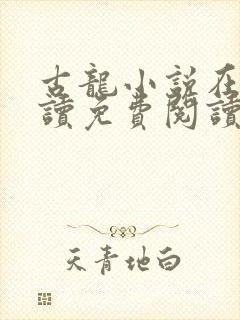 古龍小說在
讀免費閱讀
天青地白